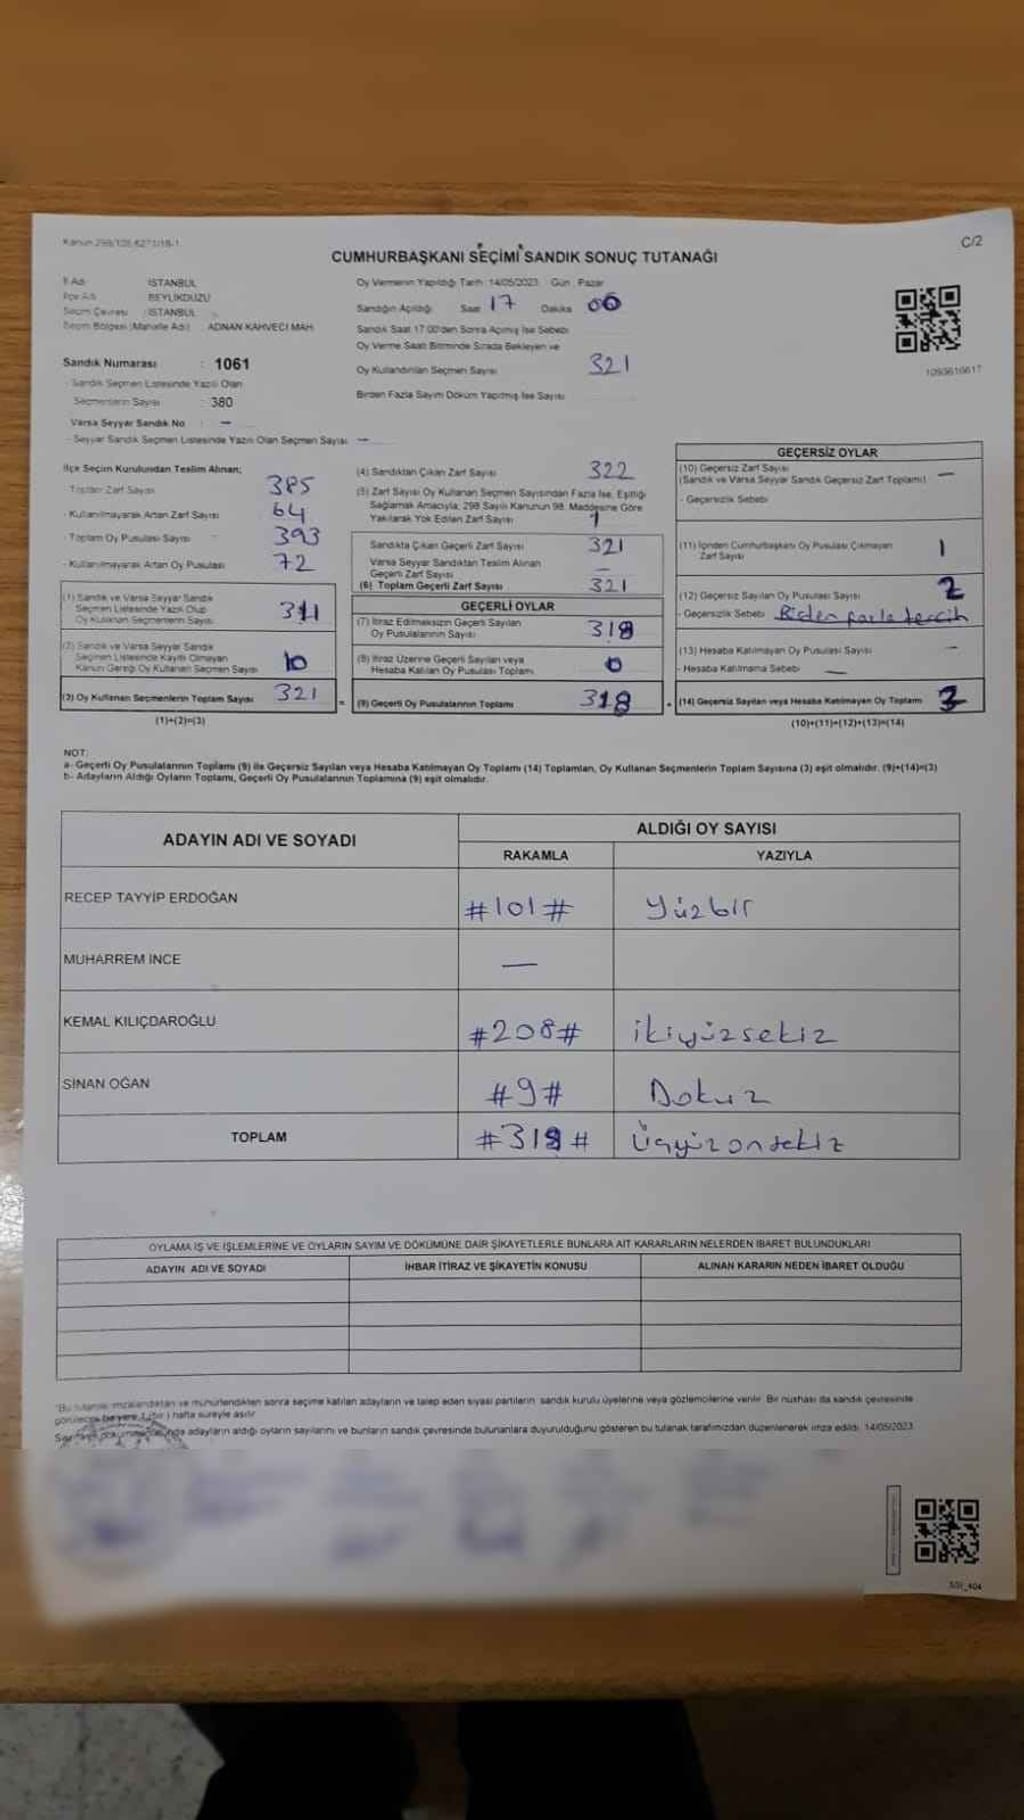 Kanun 298/105,6271/18-1
C/2
CUMHURBAŞKANI SEÇİMİ SANDIK SONUÇ TUTANAĞI
İl Adı İSTANBUL
İlçe Adı BEYLİKDÜZÜ
Seçim Çevresi : İSTANBUL
Seçim Bölgesi (Mahalle Adı) : ADNAN KAHVECİ MAH
Sandık Numarası : 1061
- Sandık Seçmen Listesinde Yazılı Olan
Seçmenlerin Sayısı : 380
Varsa Seyyar Sandık No : —
- Seyyar Sandık Seçmen Listesinde Yazılı Olan Seçmen Sayısı —
Oy Vermenin Yapıldığı Tarih : 14/05/2023 Gün : Pazar
Sandığın Açıldığı Saat 17 Dakika 00
Sandık Saat 17:00'den Sonra Açılmış İse Sebebi
Oy Verme Saati Bitiminde Sırada Bekleyen ve
Oy Kullandırılan Seçmen Sayısı 321
Birden Fazla Sayım Döküm Yapılmış İse Sayısı
1093616617
İlçe Seçim Kurulundan Teslim Alınan;
- Toplam Zarf Sayısı 385
- Kullanılmayarak Artan Zarf Sayısı 64
- Toplam Oy Pusulası Sayısı 393
- Kullanılmayarak Artan Oy Pusulası 72
(1) Sandık ve Varsa Seyyar Sandık
Seçmen Listesinde Yazılı Olup
Oy Kullanan Seçmenlerin Sayısı 311
(2) Sandık ve Varsa Seyyar Sandık
Seçmen Listesinde Kayıtlı Olmayan
Kanun Gereği Oy Kullanan Seçmen Sayısı 10
(3) Oy Kullanan Seçmenlerin Toplam Sayısı 321
(1)+(2)=(3)
(4) Sandıktan Çıkan Zarf Sayısı 322
(5) Zarf Sayısı Oy Kullanan Seçmen Sayısından Fazla İse, Eşitliği
Sağlamak Amacıyla; 298 Sayılı Kanunun 98. Maddesine Göre
Yakılarak Yok Edilen Zarf Sayısı 1
Sandıkta Çıkan Geçerli Zarf Sayısı 321
Varsa Seyyar Sandıktan Teslim Alınan
Geçerli Zarf Sayısı —
(6) Toplam Geçerli Zarf Sayısı 321
GEÇERLİ OYLAR
(7) İtiraz Edilmeksizin Geçerli Sayılan
Oy Pusulalarının Sayısı 318
(8) İtiraz Üzerine Geçerli Sayılan veya
Hesaba Katılan Oy Pusulası Toplamı 0
= (9) Geçerli Oy Pusulalarının Toplamı 318
GEÇERSİZ OYLAR
(10) Geçersiz Zarf Sayısı —
(Sandık ve Varsa Seyyar Sandık Geçersiz Zarf Toplamı)
- Geçersizlik Sebebi
(11) İçinden Cumhurbaşkanı Oy Pusulası Çıkmayan
Zarf Sayısı 1
(12) Geçersiz Sayılan Oy Pusulası Sayısı 2
- Geçersizlik Sebebi Birden fazla tercih
(13) Hesaba Katılmayan Oy Pusulası Sayısı —
- Hesaba Katılmama Sebebi —
+ (14) Geçersiz Sayılan veya Hesaba Katılmayan Oy Toplamı 3
(10)+(11)+(12)+(13)=(14)
NOT:
a- Geçerli Oy Pusulalarının Toplamı (9) ile Geçersiz Sayılan veya Hesaba Katılmayan Oy Toplamı (14) Toplamları, Oy Kullanan Seçmenlerin Toplam Sayısına (3) eşit olmalıdır. (9)+(14)=(3)
b- Adayların Aldığı Oyların Toplamı, Geçerli Oy Pusulalarının Toplamına (9) eşit olmalıdır.
ADAYIN ADI VE SOYADI
ALDIĞI OY SAYISI
RAKAMLA YAZIYLA
RECEP TAYYİP ERDOĞAN #101# Yüzbir
MUHARREM İNCE —
KEMAL KILIÇDAROĞLU #208# ikiyüzsekiz
SİNAN OĞAN #9# Dokuz
TOPLAM #318# Üçyüzonsekiz
OYLAMA İŞ VE İŞLEMLERİNE VE OYLARIN SAYIM VE DÖKÜMÜNE DAİR ŞİKAYETLERLE BUNLARA AİT KARARLARIN NELERDEN İBARET BULUNDUKLARI
ADAYIN ADI VE SOYADI İHBAR İTİRAZ VE ŞİKAYETİN KONUSU ALINAN KARARIN NEDEN İBARET OLDUĞU
"Bu tutanak imzalandıktan ve mühürlendikten sonra seçime katılan adayların ve talep eden siyasi partilerin sandık kurulu üyelerine veya gözlemcilerine verilir. Bir nüshası da sandık çevresinde
görülecek bir yere 1 (bir) hafta süreyle asılır
adayların aldığı oyların sayılarını ve bunların sandık çevresinde bulunanlara duyurulduğunu gösteren bu tutanak tarafımızdan düzenlenerek imza edildi. 14/05/2023